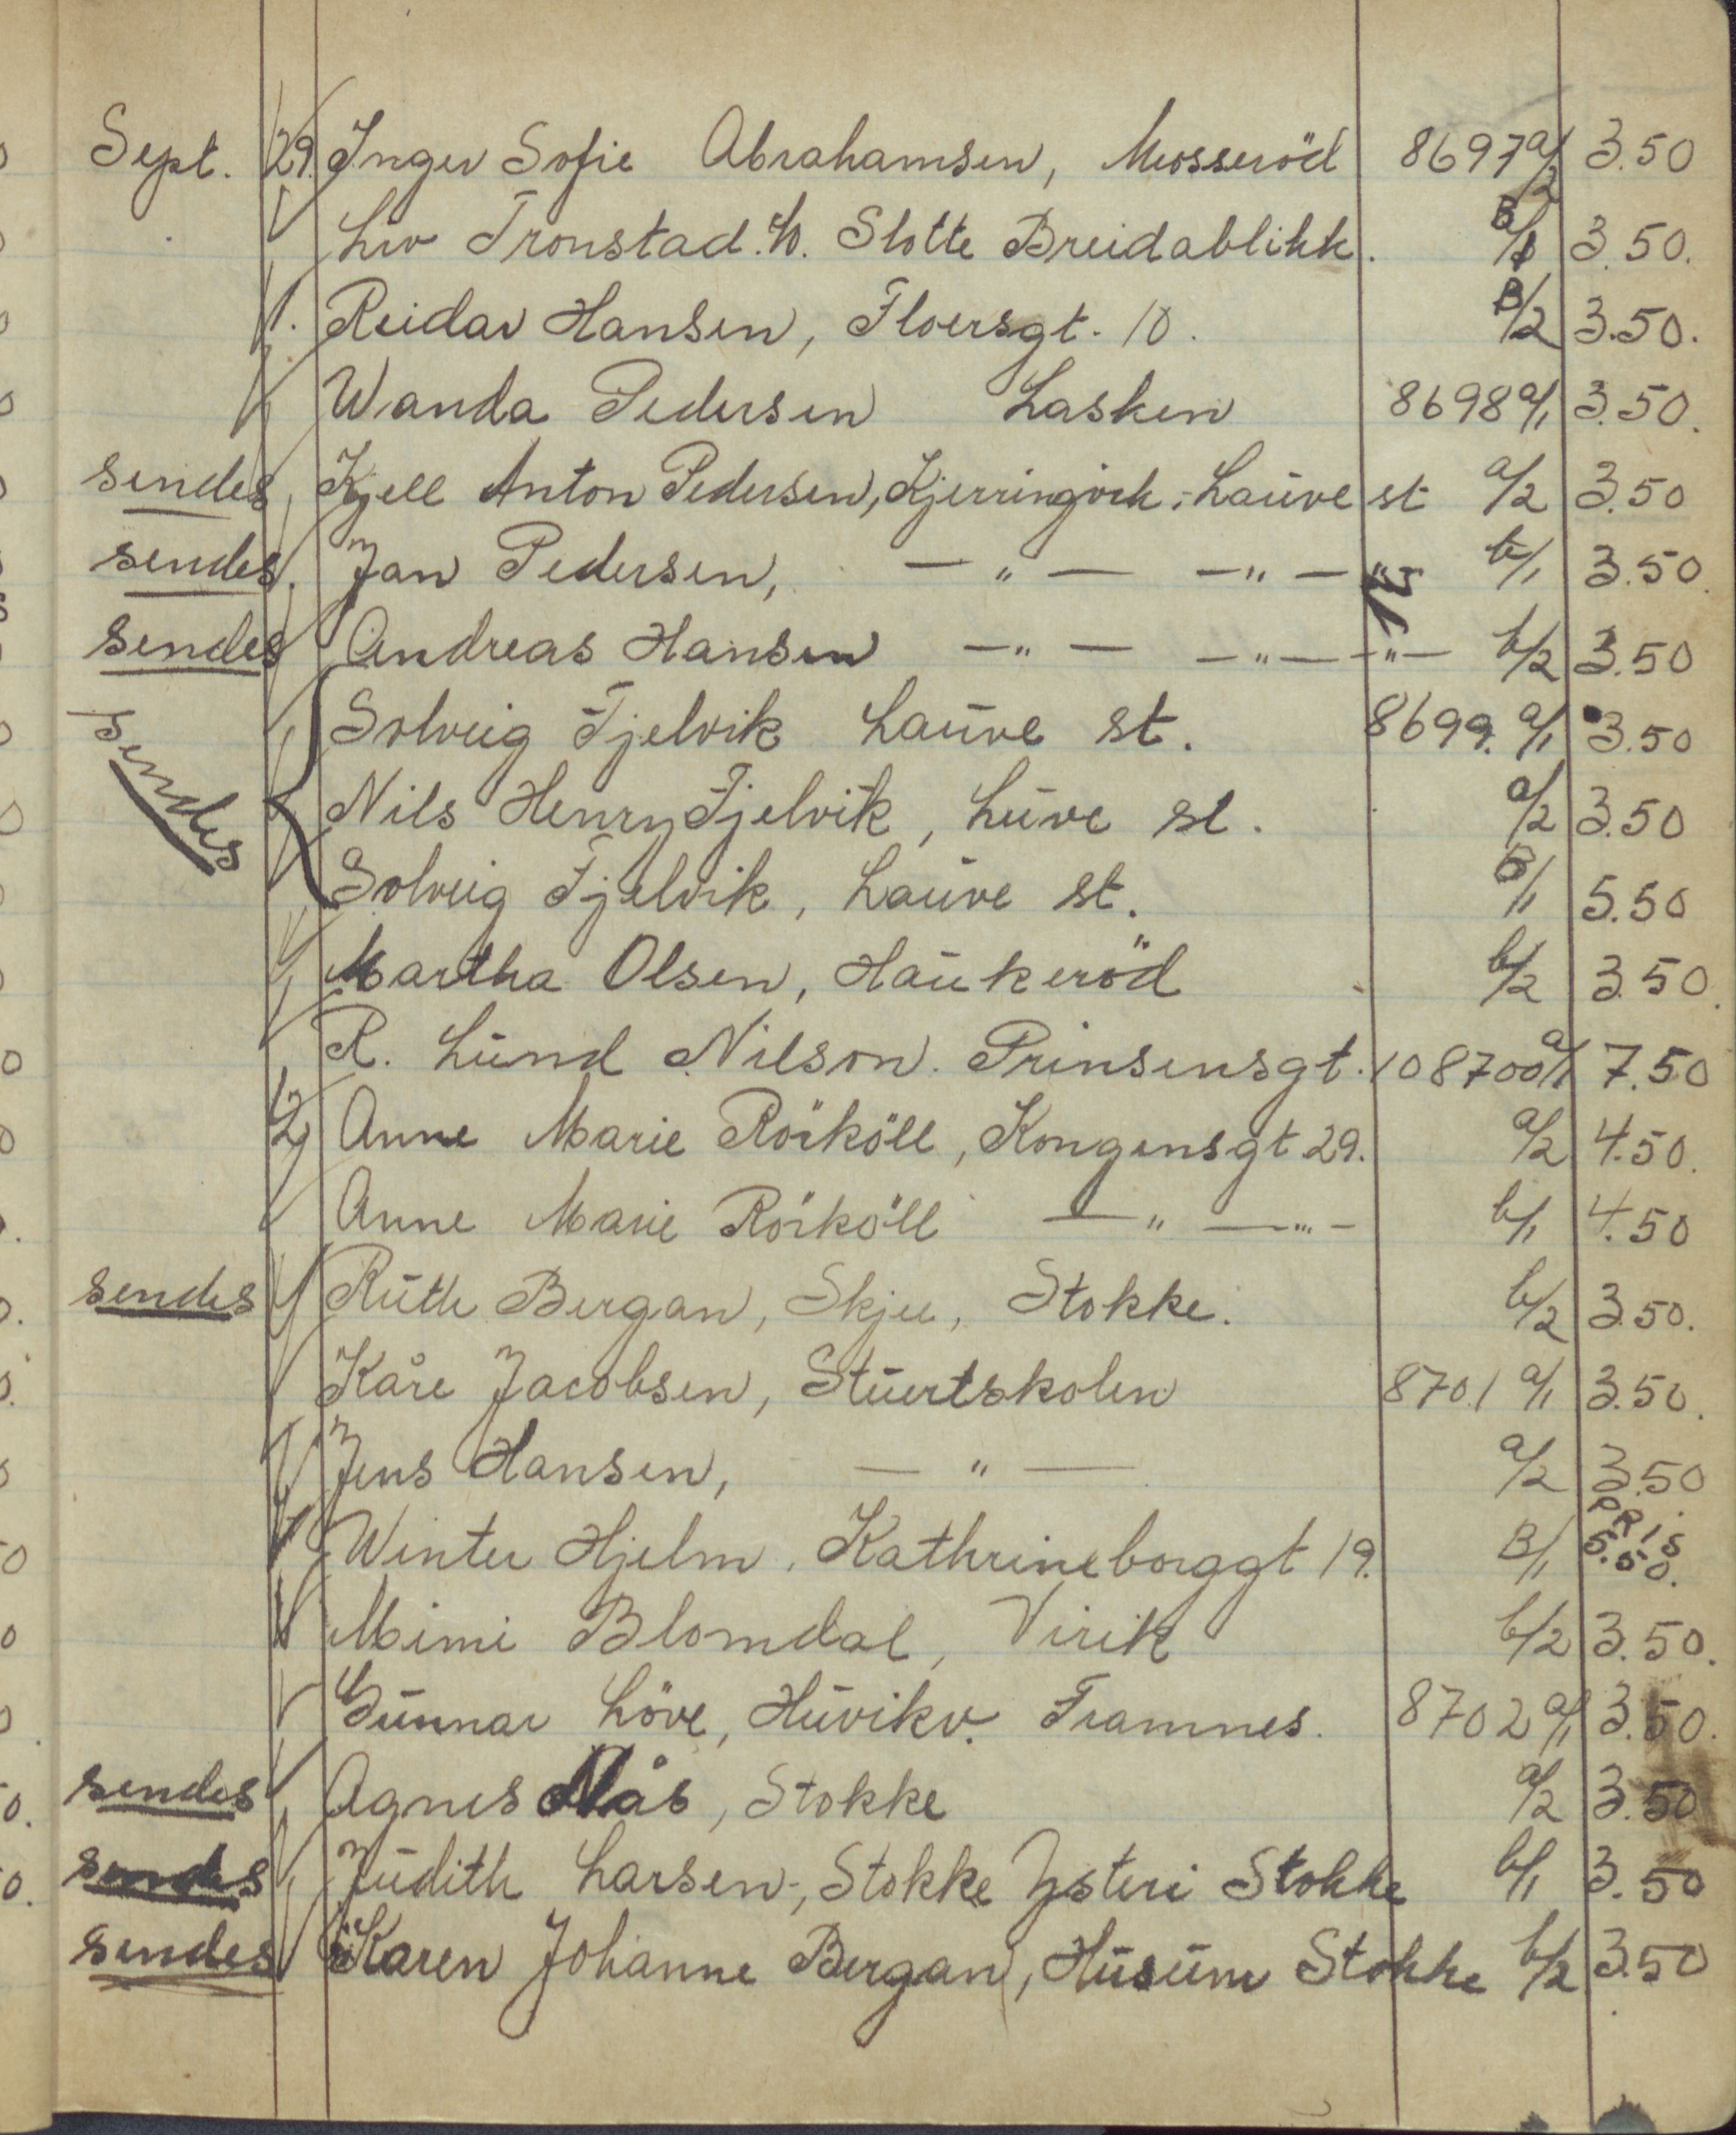 Sept. 29. Inger Sofie Abrahamsen, Mosseröd 8697 a/2 3.50
Liv Tronstad. Slotte Breidablikk. B/1 3.50.
1. Reidar Hansen, Floersgt. 10. B/2 3.50.
Wanda Pedersen Lasken 8698 a/1 3.50.
sendes Kjell Anton Pedersen, Kjerringvik, Lauve st a/2 3.50
sendes. Jan Pedersen, — " — — " — " b/1 3.50.
sendes Andreas Hansen — " — — " — " — b/2 3.50
sendes Solveig Fjelvik Lauve st. 8699. a/1 3.50
Nils Henry Fjelvik, Luve st. a/2 3.50
Solveig Fjelvik, Lauve st. B/1 5.50
Martha Olsen, Haukeröd b/2 3.50.
R. Lund Nilson. Prinsensgt. 10 8700 a/1 7.50
2 Anne Marie Röiköll, Kongensgt 29. a/2 4.50.
Anne Marie Röiköll — " — " — b/1 4.50
sendes Ruth Bergan, Skjee, Stokke. b/2 3.50.
Kåre Jacobsen, Stuertskolen 8701 a/1 3.50.
Jens Hansen, — " — a/2 3.50
Winter Hjelm, Kathrineborggt 19. B/1 PRIS 5.50.
Mimi Blomdal, Virik b/2 3.50.
Gunnar Löve, Huvikv. Framnes. 8702 a/1 3.50.
sendes Agnes Nås, Stokke a/2 3.50
sendes Judith Larsen, Stokke Ysteri Stokke b/1 3.50
sendes Karen Johanne Bergan, Husum Stokke b/2 3.50